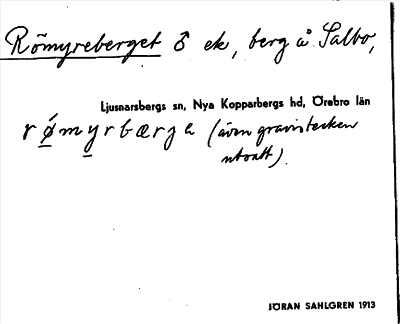 Römyreberget ♂ ek, berg å Salbo,
Ljusnarsbergs sn, Nya Kopparbergs hd, Örebro län
rǿmyrbærga (även gravistecken
utsatt).
JÖRAN SAHLGREN 1913